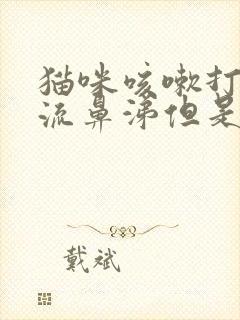 猫咪咳嗽打
流鼻涕但是
戴斌